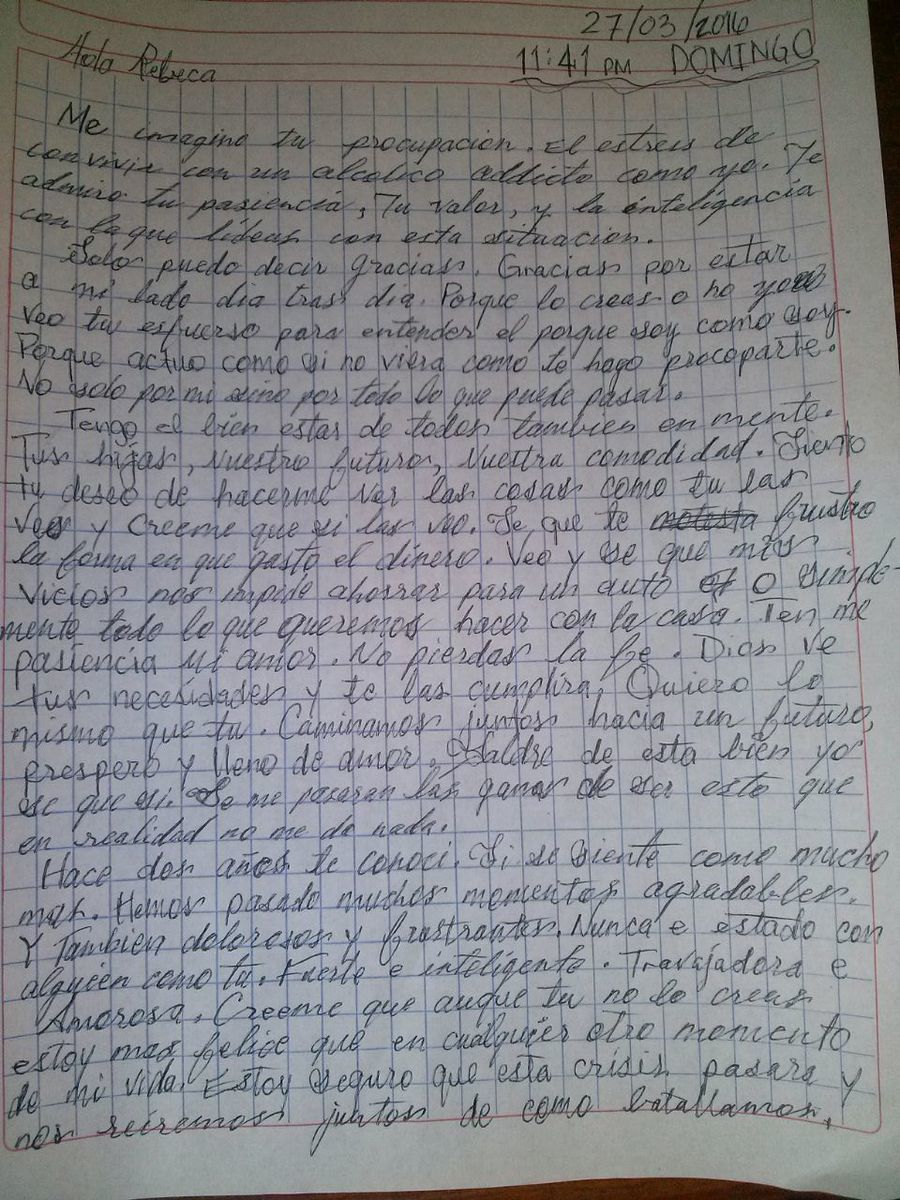 27/03/2016
Hola Rebeca
11:41 PM DOMINGO
Me imagino tu procupacion. El estres de
convivir con un alcolico addicto como yo. Te
admiro tu pasiencia, Tu valor, y la inteligencia
con la que lideas con esta situacion.
Solo puedo decir gracias. Gracias por estar
a mi lado dia tras dia. Porque lo creas o no yo
veo tu esfuerso para entender el porque soy como soy.
Porque actuo como si no viera como te hago procoparte.
No solo por mi sino por todo lo que puede pasar.
Tengo el bien estar de todos tambien en mente.
Tus hijas, Nuestro futuro, Nuestra comodidad. Siento
tu deseo de hacerme ver las cosas como tu las
ves y Creeme que si las veo. Se que te molesta frustro
la forma en que gasto el dinero. Veo y se que mis
vicios nos impide ahorrar para un auto o simple-
mente todo lo que queremos hacer con la casa. Ten me
pasiencia mi amor. No pierdas la fe. Dios ve
tus necesidades y te las cumplira. Quiero lo
mismo que tu. Caminamos juntos hacia un futuro,
prespero y lleno de amor. Saldre de esta bien yo
se que si. Se me pasaran las ganas de ser esto que
en realidad no me da nada.
Hace dos años te conoci. Si se siente como mucho
mas. Hemos pasado muchos momentos agradables.
Y Tambien dolorosos y frustrantes. Nunca e estado con
alguien como tu. Fuerte e inteligente. Travajadora e
Amorosa. Creeme que auque tu no lo creas
estoy mas felice que en cualquier otro momento
de mi vida. Estoy seguro que esta crisis pasara y
nos reiremos juntos de como batallamos.